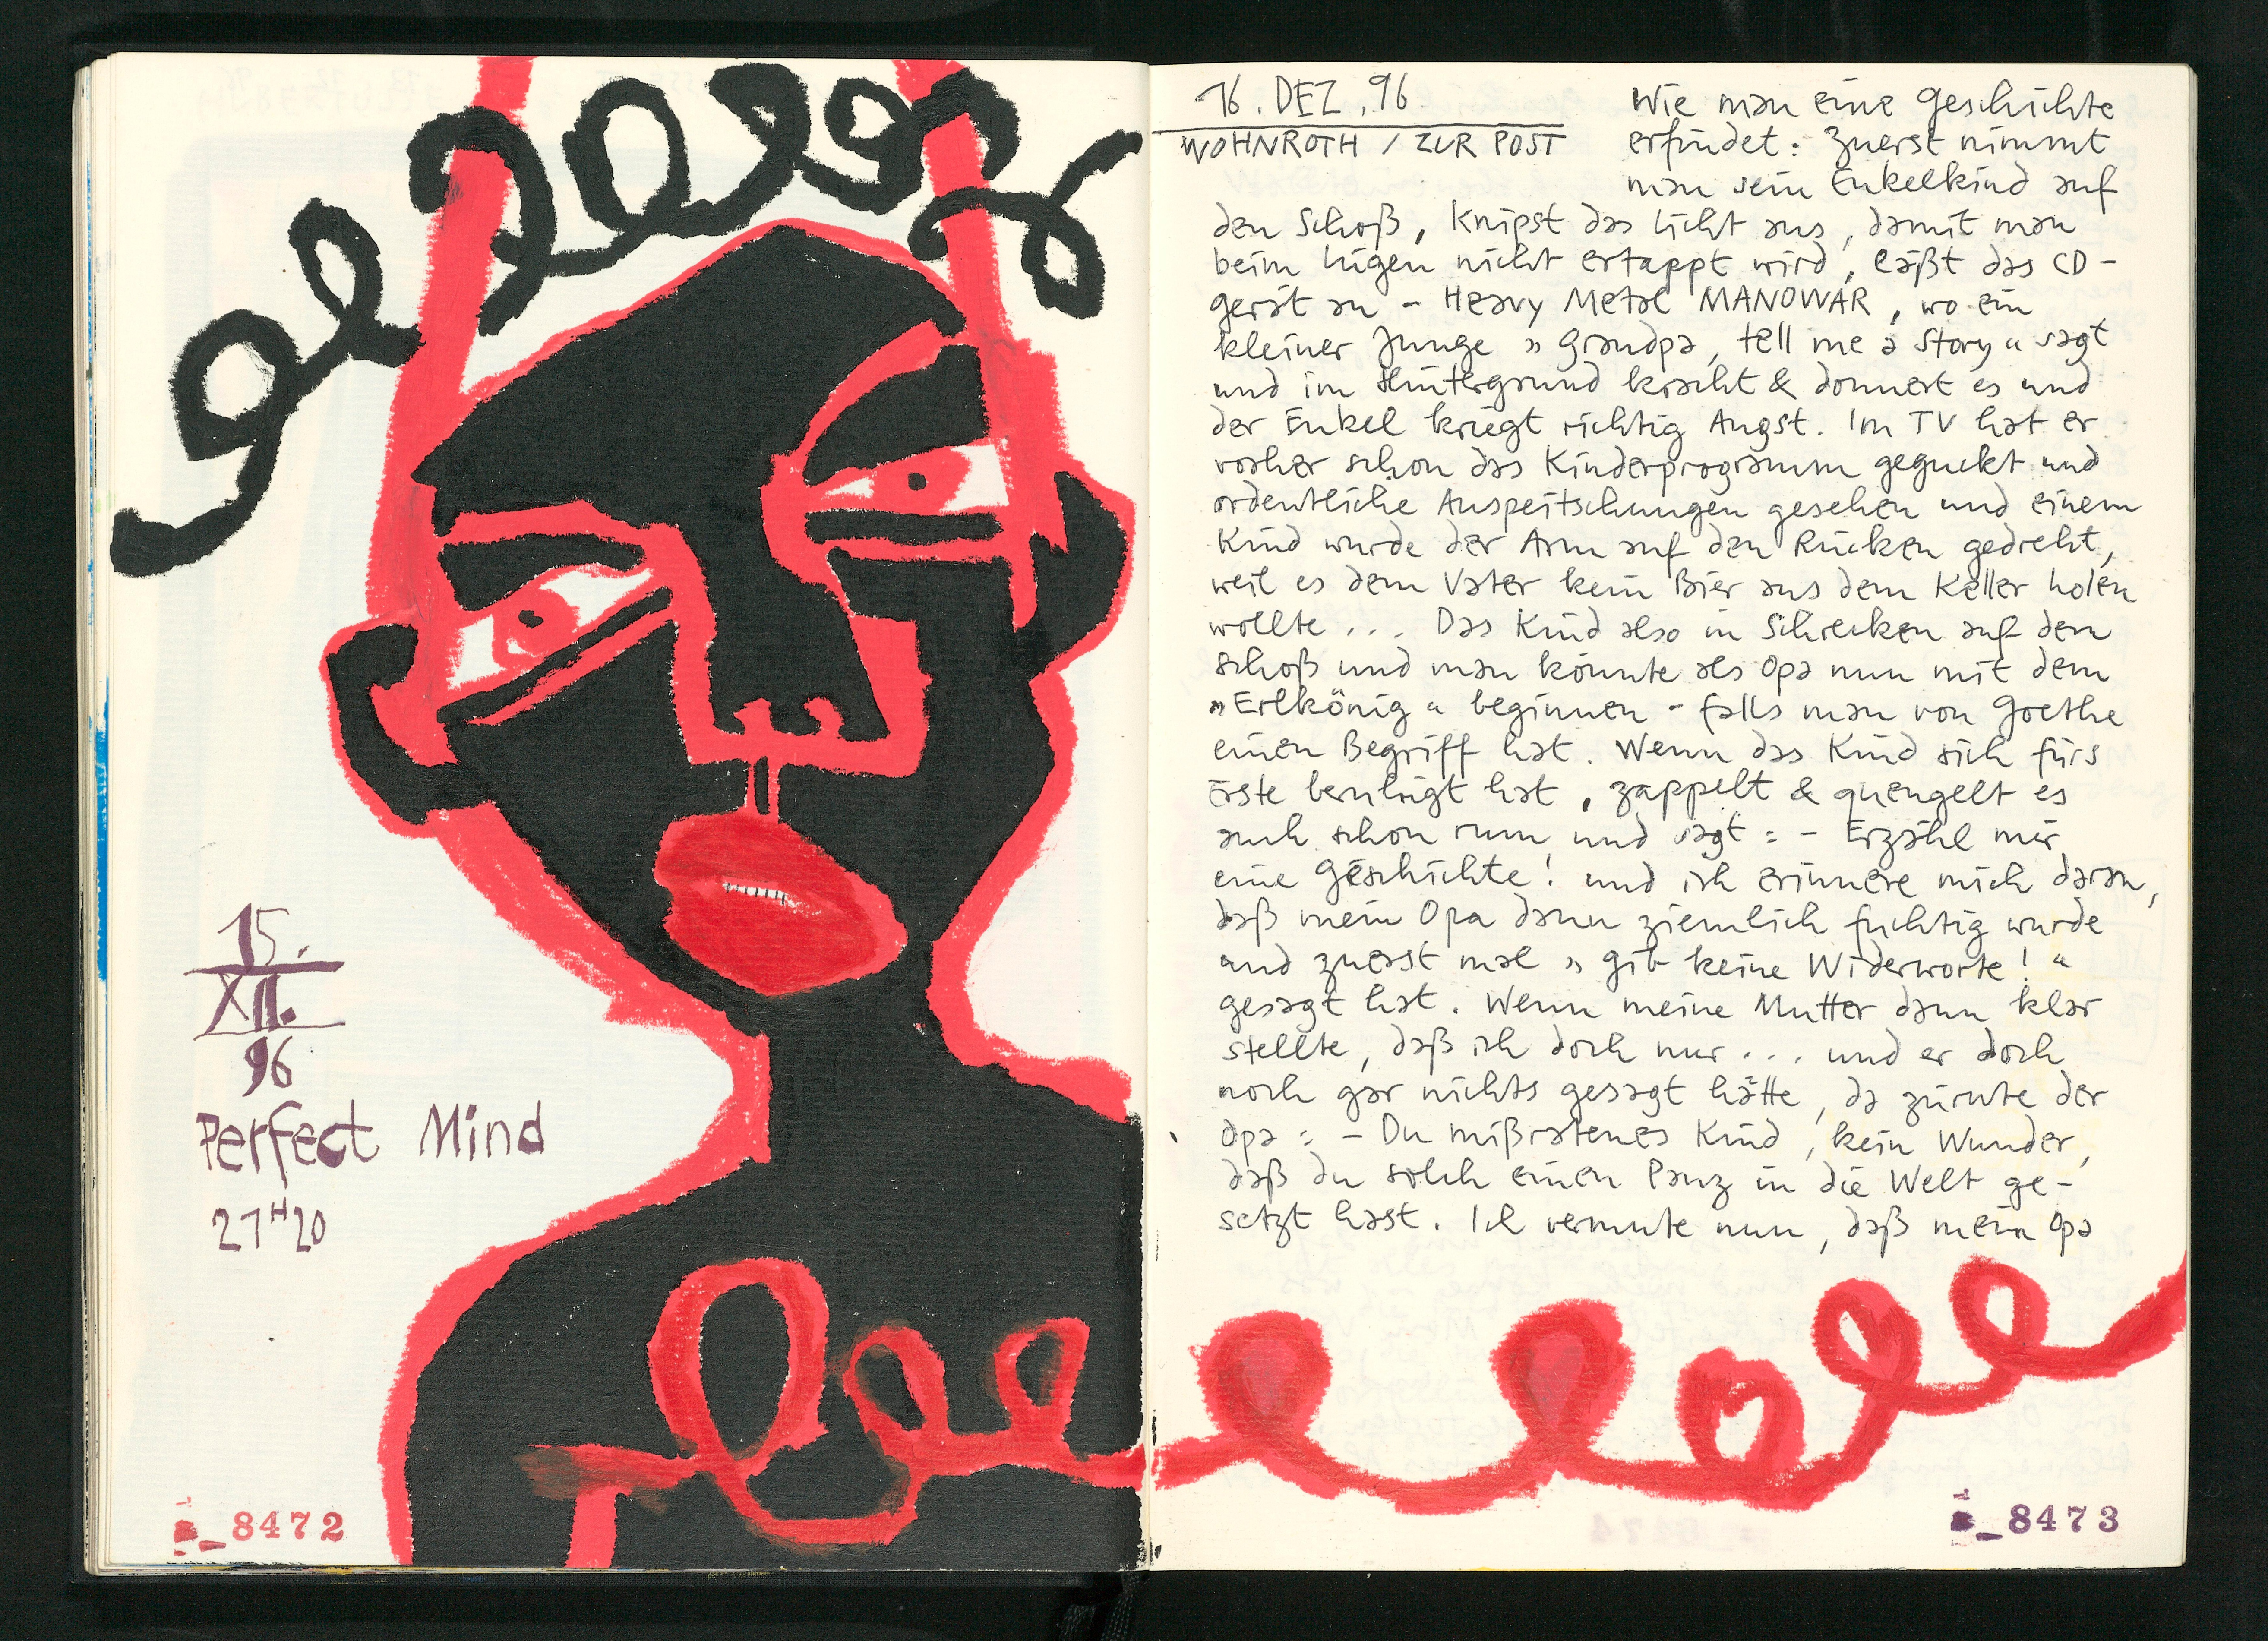 15.
XII.
96
Perfect Mind
21H20
8472
16. DEZ. 96
WOHNROTH / ZUR POST
Wie man eine Geschichte
erfindet: Zuerst nimmt
man sein Enkelkind auf
den Schoß, knipst das Licht aus, damit man
beim Lügen nicht ertappt wird, läßt das CD-
gerät an - Heavy Metal MANOWAR, wo ein
kleiner Junge „Grandpa, tell me a story“ sagt
und im Hintergrund kracht & donnert es und
der Enkel kriegt richtig Angst. Im TV hat er
vorher schon das Kinderprogramm geguckt und
ordentliche Auspeitschungen gesehen und einem
Kind wurde der Arm auf den Rücken gedreht,
weil es dem Vater kein Bier aus dem Keller holen
wollte ... Das Kind also in Schrecken auf dem
Schoß und man könnte als Opa nun mit dem
„Erlkönig“ beginnen - falls man von Goethe
einen Begriff hat. Wenn das Kind sich fürs
Erste beruhigt hat, zappelt & quengelt es
auch schon rum und sagt: - Erzähl mir
eine Geschichte! und ich erinnere mich daran,
daß mein Opa dann ziemlich fuchtig wurde
und zuerst mal „gib keine Widerworte!“
gesagt hat. Wenn meine Mutter dann klar
stellte, daß ich doch nur ... und er doch
noch gar nichts gesagt hätte, da zürnte der
Opa: - Du mißratenes Kind, kein Wunder,
daß du solch einen Panz in die Welt ge-
setzt hast. Ich vermute nun, daß mein Opa
8473